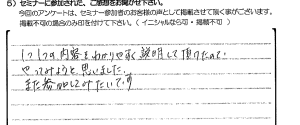 5) セミナーに参加された、ご感想をお聞かせ下さい。
今回のアンケートは、セミナー参加者のお客様の声として掲載させて頂く事がございます。
掲載不可の場合のみ印を付けて下さい。（イニシャルなら可・掲載不可）
1つ1つの内容をわかりやすく説明して頂けたので
やってみようと思いました。
また参加してみたいです